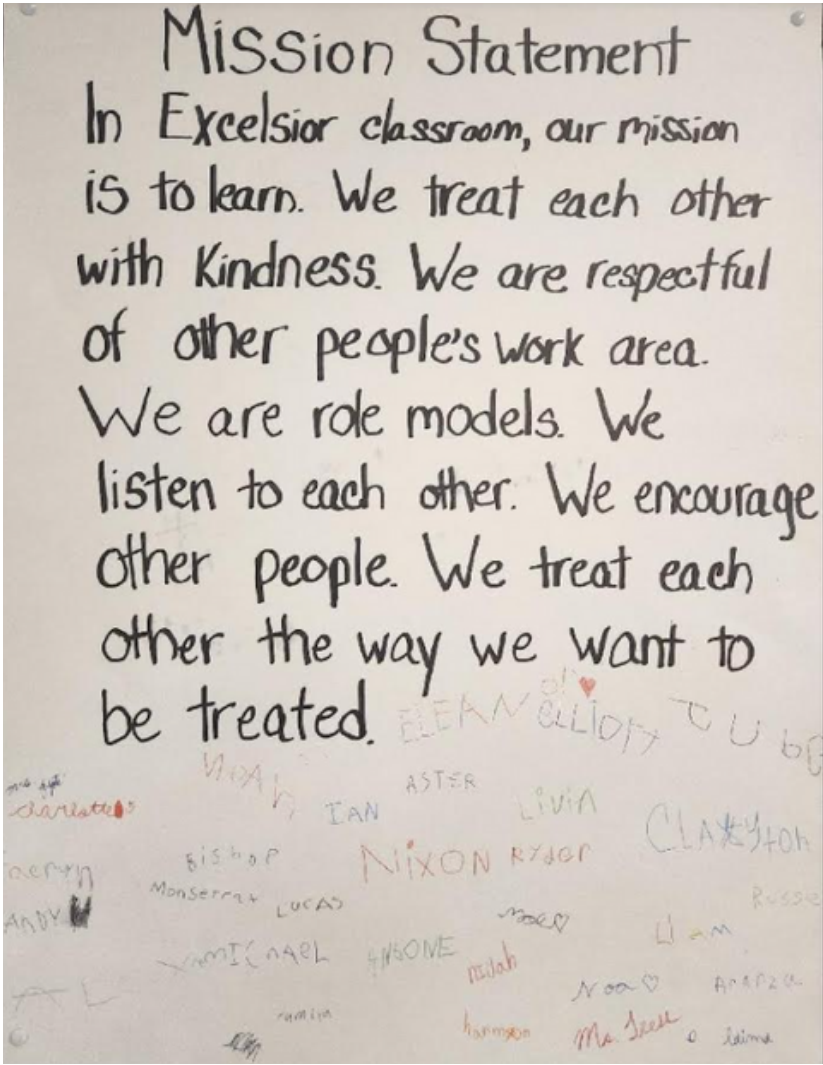 Mission Statement
In Excelsior classroom, our mission
is to learn. We treat each other
with Kindness. We are respectful
of other people's work area.
We are role models. We
listen to each other. We encourage
other people. We treat each
other the way we want to
be treated.
ELEAN ELLIOTT
NOAh ASTER
charlotte IAN Livia
CLAYton
aeryn Bishop NiXON RYder
Monserrat LUCAS
ANDY Russe
Liam
MICHAEL
Noa♡
harmxon Ms. laima